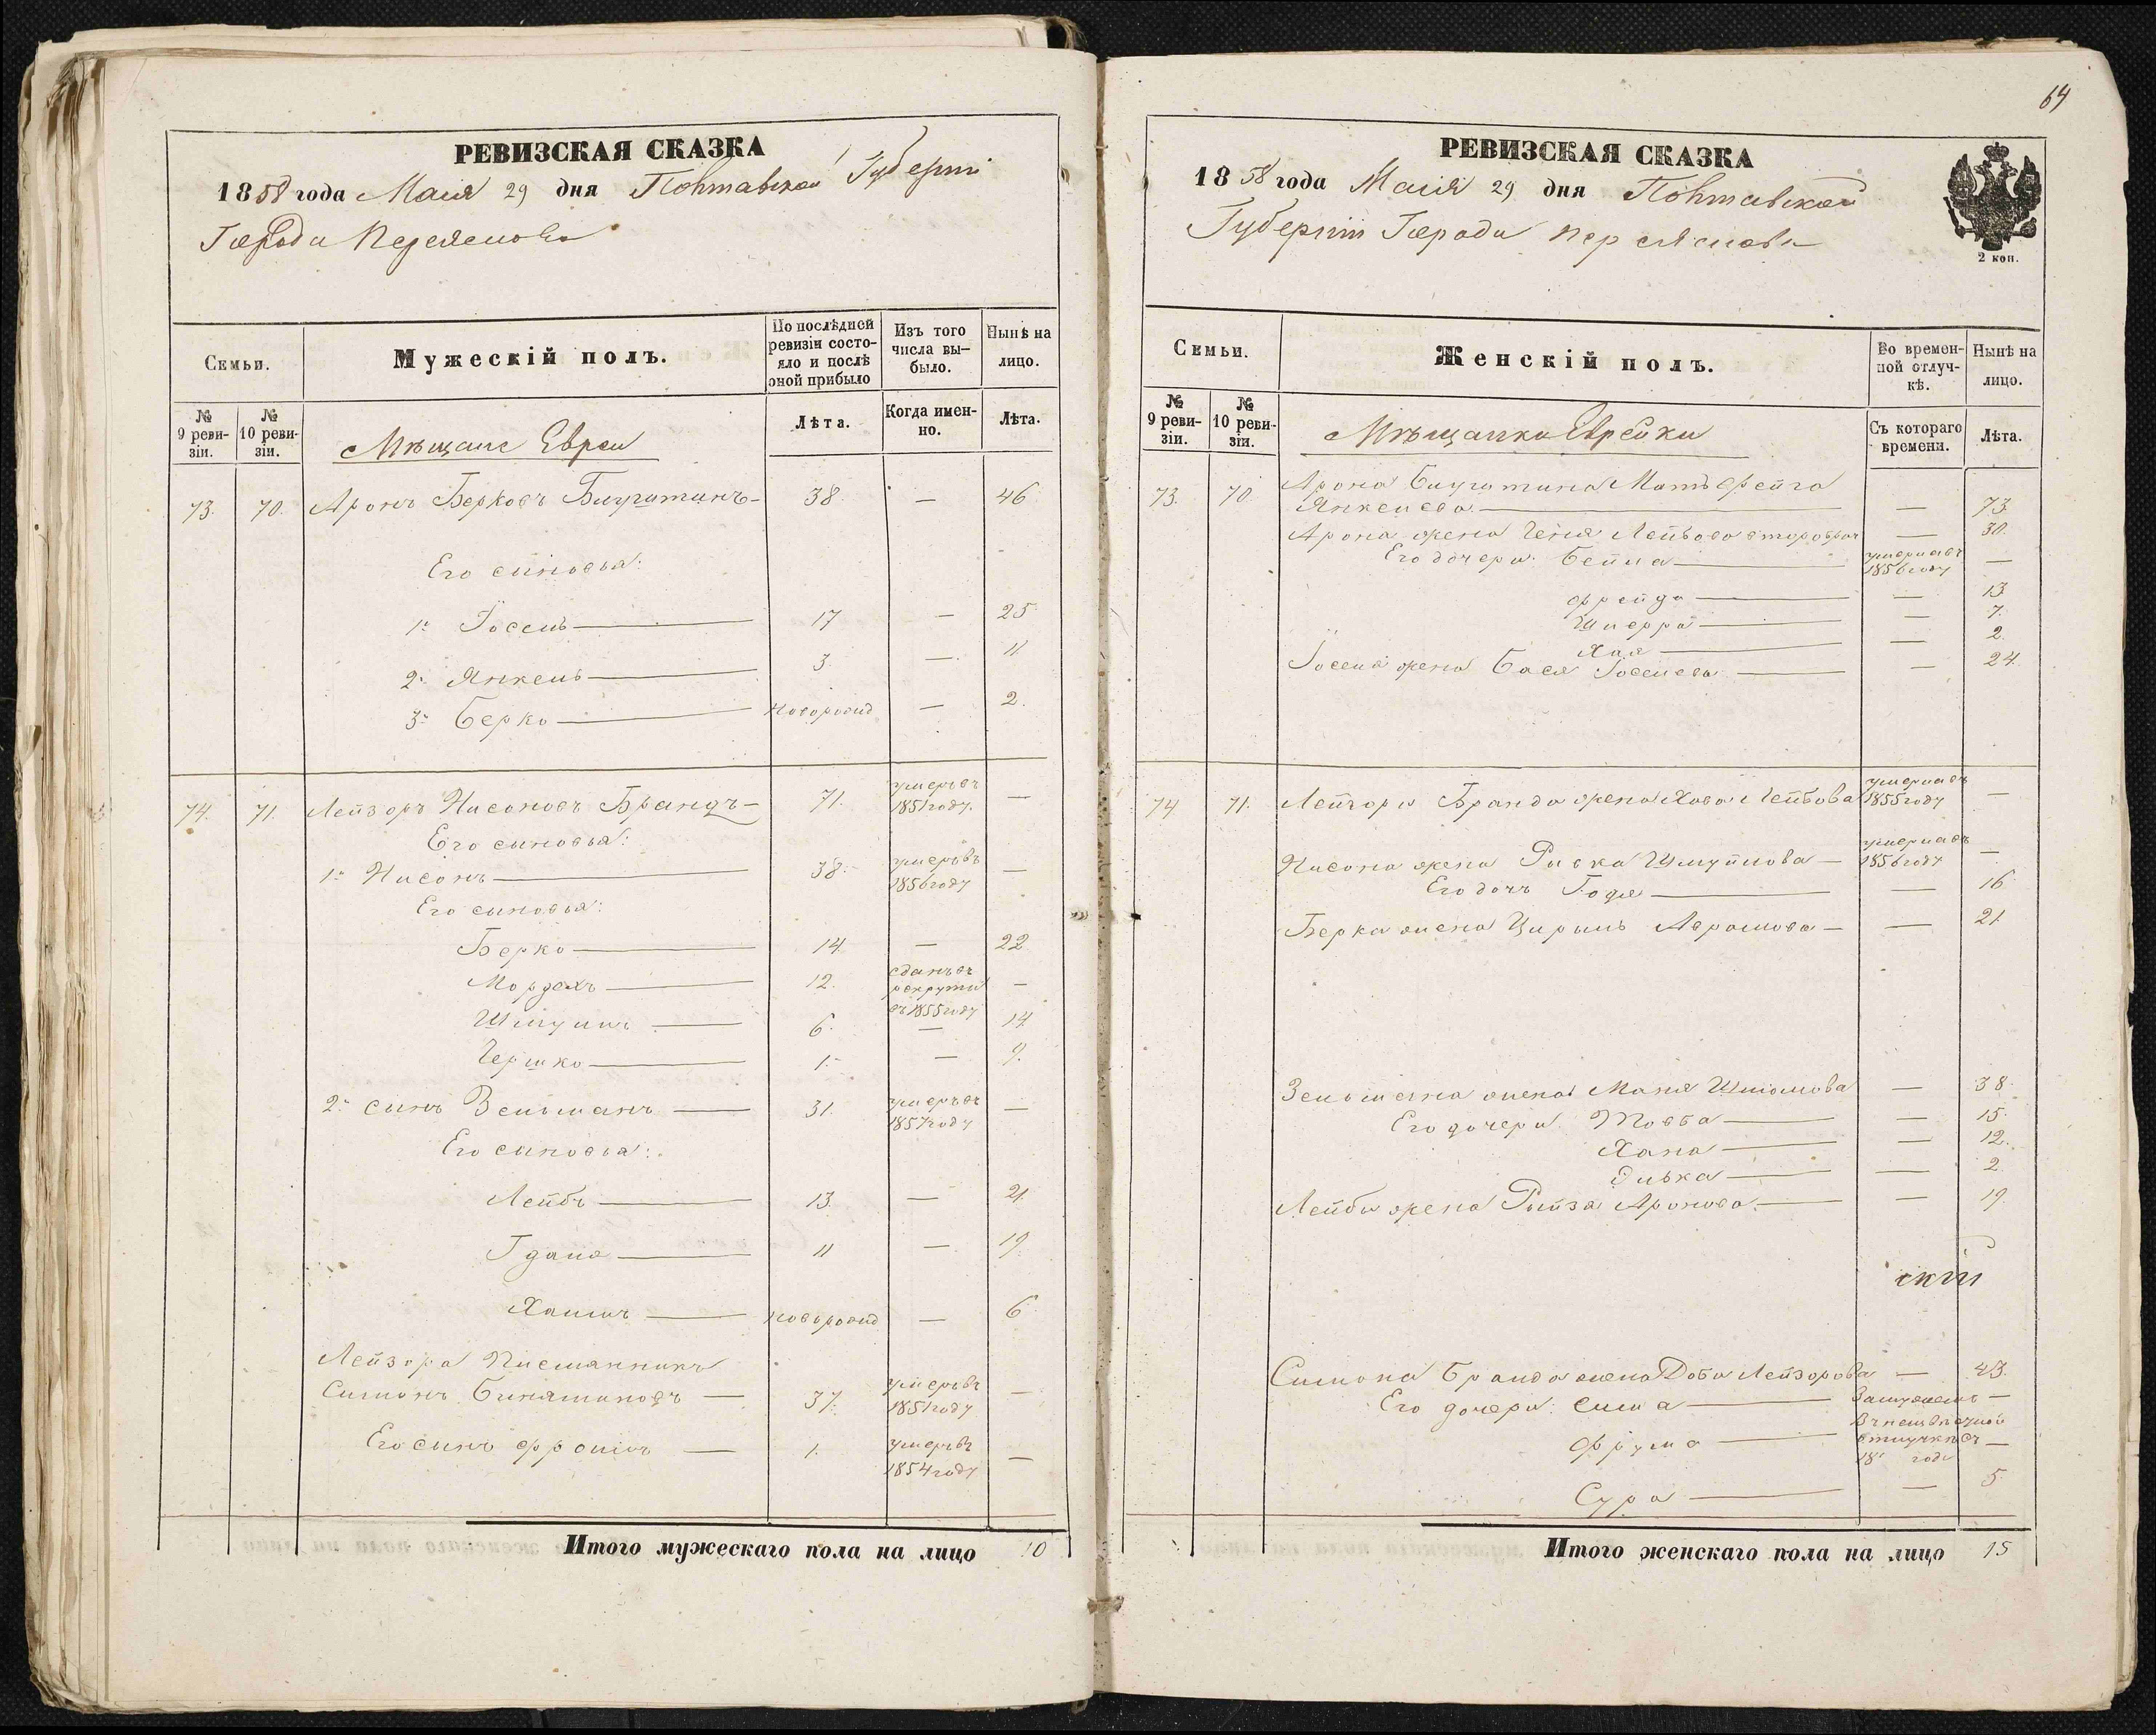 РЕВИЗСКАЯ СКАЗКА
1858 года Маія 29 дня Полтавской Губерніи
Города Переяслова
Семьи.
Мужескій полъ.
По послѣдней ревизіи состояло и послѣ оной прибыло
Изъ того числа вы-было.
Нынѣ на лицо.
№ 9 реви-зіи.
№ 10 реви-зіи.
Мѣщане Евреи
Лѣта.
Когда имен-но.
Лѣта.
73. 70. Аронъ Берковъ 38 — 46
Его сыновья:
1й Іосель 17 — 25
2й Янкель 3. — 11
3й Берко новорожд — 2.
74. 71. Лейзоръ Нисоновъ Брандъ 71. умеръ въ 1851 году. —
Его сыновья:
1й Нисонъ 38. умеръ въ 1856 году —
Его сыновья:
Берко 14 — 22
Мордехъ 12. сданъ въ рекруты въ 1855 году —
Шмуилъ 6. — 14
Гершко 1. — 9.
2й сынъ Зельманъ 31. умеръ въ 1857 году —
Его сыновья:
Лейбъ 13. — 21.
Гдаля 11 — 19.
Хаимъ новорожд — 6
Лейзора Племянникъ
Симонъ Биняминовъ 37. умеръ въ 1851 году —
Его сынъ Фроимъ 1. умеръ въ 1854 году —
Итого мужескаго пола на лицо 10
64
РЕВИЗСКАЯ СКАЗКА
1858 года Маія 29 дня Полтавской
Губерніи Города Переяслова
2 коп.
Семьи.
Женскій полъ.
Во времен-ной отлуч-кѣ.
Нынѣ на лицо.
№ 9 реви-зіи.
№ 10 реви-зіи.
Мѣщанки Еврейки
Съ котораго времени.
Лѣта.
73. 70. Арона Мать Фейга
Янкелева — 73
Арона жена Геня Лейбова — 30.
Его дочери: Бейла умерла въ 1856 году —
Фрейда — 13
Шифра — 7.
Хая — 2.
Іоселя жена Бася Іоселева — 24.
74 71. Лейзора Бранда жена Хава Лейбова умерла въ 1855 году —
Нисона жена Ривка Шмуйлова — умерла въ 1856 году —
Его дочь Годя — 16
Берка жена Цирль Аврамова — — 21
Зельмана жена Маня Шліомова — 38
Его дочери: Товба — 15.
Хана — 12.
Ривка — 2
Лейбы жена Рейза Аронова — 19.
скій
Симона Бранда жена Доба Лейзорова — 43.
Его дочери: Сима Замужемъ —
Фрума отлучкѣ съ 18 года —
Сура — 5.
Итого женскаго пола на лицо 15